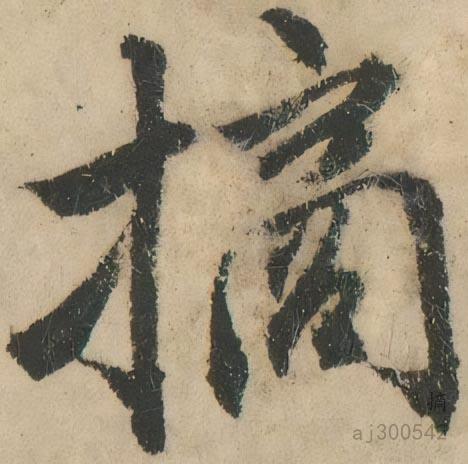 摘
摘
aj300542